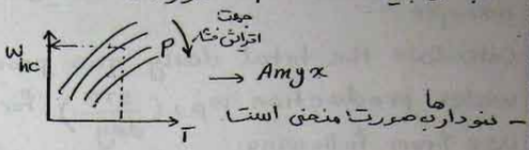 W_HC
P
جهت
افزایش فشار
→ Amyx
T
- نمودارها بصورت منحنی است